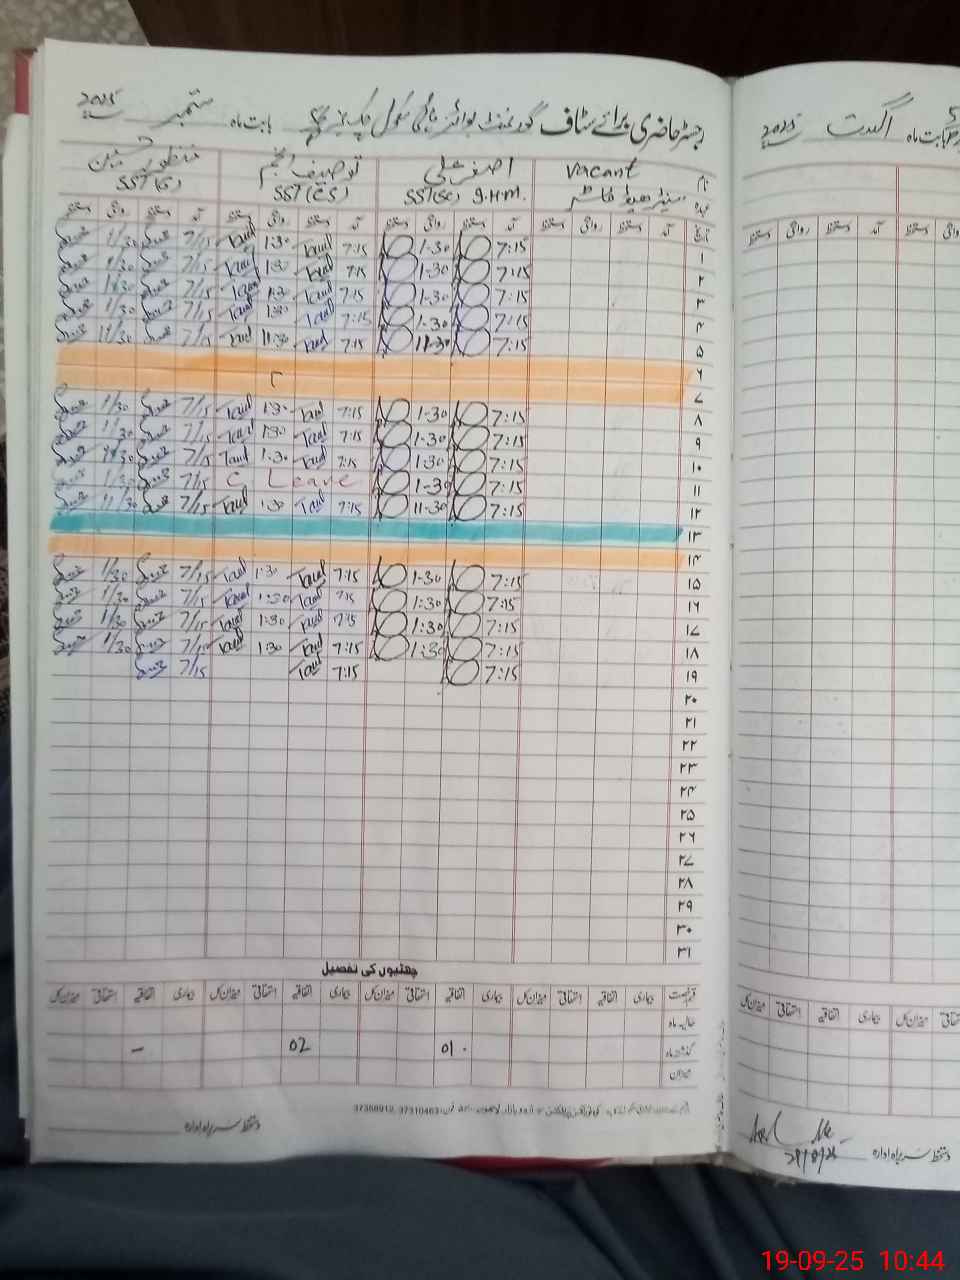 رجسٹر حاضری برائے سٹاف گورنمنٹ بوائز ہائی سکول چک نمبر بابت ماہ ستمبر 2025
نام Vacant اصغر علی توصیف انجم منظور حسین
عہدہ سینئر ہیڈ ماسٹر SST(Sc) I.H.M. SST(CS) SST(G)
تاریخ آمد دستخط روانگی دستخط آمد دستخط روانگی دستخط آمد دستخط روانگی دستخط آمد دستخط روانگی دستخط
۱ 7:15 1-30 7:15 Tauf 1:30 Tauf 7/15 1/30
۲ 7:15 1-30 7:15 Tauf 1:30 Tauf 7/15 1/30
۳ 7:15 1-30 7:15 Tauf 1:30 Tauf 7/15 1/30
۴ 7:15 1-30 7:15 Tauf 1:30 Tauf 7/15 1/30
۵ 7:15 11-30 7:15 Tauf 11:30 Tauf 7/15 11/30
۶
۷
۸ 7:15 1-30 7:15 Tauf 1:30 Tauf 7/15 1/30
۹ 7:15 1-30 7:15 Tauf 1:30 Tauf 7/15 1/30
۱۰ 7:15 1-30 7:15 Tauf 1:30 Tauf 7/15 1/30
۱۱ 7:15 1-30 C Leave 7/15 1/30
۱۲ 7:15 11-30 7:15 Tauf 1:30 Tauf 7/15 11/30
۱۳
۱۴
۱۵ 7:15 1-30 7:15 Tauf 1:30 Tauf 7/15 1/30
۱۶ 7:15 1:30 7:15 Tauf 1:30 Tauf 7/15 1/30
۱۷ 7:15 1:30 7:15 Tauf 1:30 Tauf 7/15 1/30
۱۸ 7:15 1:30 7:15 Tauf 1:30 Tauf 7/15 1/30
۱۹ 7:15 7:15 Tauf 7/15
۲۰
۲۱
۲۲
۲۳
۲۴
۲۵
۲۶
۲۷
۲۸
۲۹
۳۰
۳۱
چھٹیوں کی تفصیل
قسم رخصت بیماری اتفاقیہ استحقاقی میزان کل بیماری اتفاقیہ استحقاقی میزان کل بیماری اتفاقیہ استحقاقی میزان کل بیماری اتفاقیہ استحقاقی میزان کل
حالیہ ماہ
گذشتہ ماہ 01 02 -
میزان
37310463، 37358912
دستخط سربراہ ادارہ
بابت ماہ اگست 2025
آمد دستخط روانگی دستخط
بیماری اتفاقیہ استحقاقی میزان کل
دستخط سربراہ ادارہ
19-09-25 10:44